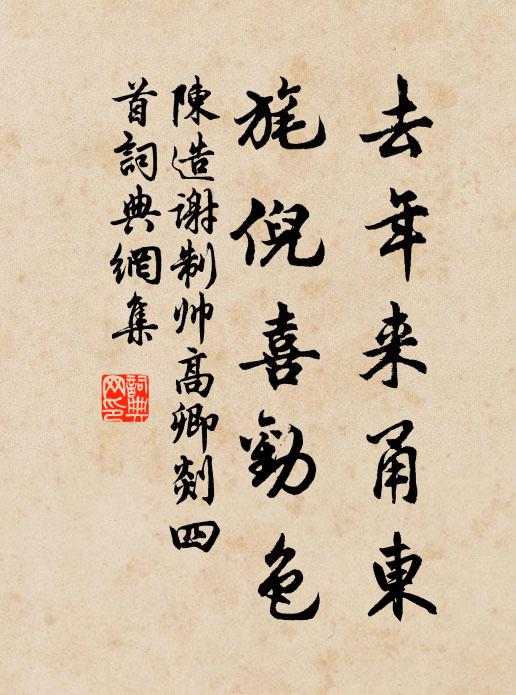 去年来甬東
旄倪喜動色
陳造谢制帅高卿剡四
首詞典網集
詞典网印